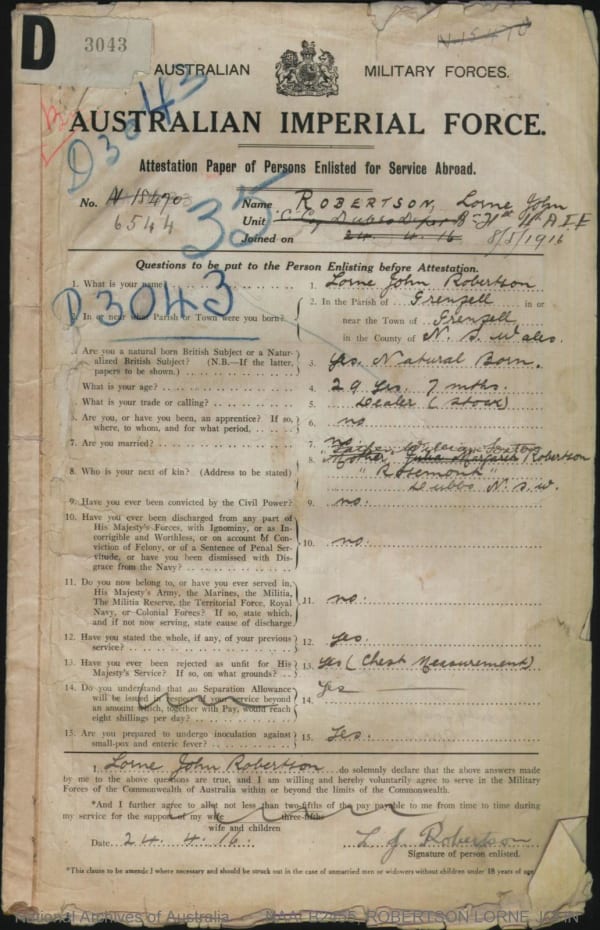 D 3043
AUSTRALIAN MILITARY FORCES.
AUSTRALIAN IMPERIAL FORCE.
D3043
Attestation Paper of Persons Enlisted for Service Abroad.
No. N 18470
6544
35
Name ROBERTSON, Lorne John
Unit "C" Coy Dubbo Depot
Joined on 24. 4. 16 8/5/1916
Questions to be put to the Person Enlisting before Attestation.
D3043
1. What is your name? 1. Lorne John Robertson
2. In or near what Parish or Town were you born? 2. In the Parish of Grenfell in or
near the Town of Grenfell
in the County of N. S. Wales.
3. Are you a natural born British Subject or a Natur-
alized British Subject? (N.B.—If the latter,
papers to be shown.) 3. Yes. Natural Born.
What is your age? 4. 29 Yrs. 7 mths.
What is your trade or calling? 5. Dealer (Stock)
Are you, or have you been, an apprentice? If so,
where, to whom, and for what period. 6. no
7. Are you married? 7. no
8. Who is your next of kin? (Address to be stated) 8. Mother, Julia Margaret Robertson
"Rosemont"
Dubbo N.S.W.
9. Have you ever been convicted by the Civil Power? 9. no.
10. Have you ever been discharged from any part of
His Majesty's Forces, with Ignominy, or as In-
corrigible and Worthless, or on account of Con-
viction of Felony, or of a Sentence of Penal Ser-
vitude, or have you been dismissed with Dis-
grace from the Navy? 10. no.
11. Do you now belong to, or have you ever served in,
His Majesty's Army, the Marines, the Militia,
The Militia Reserve, the Territorial Force, Royal
Navy, or Colonial Forces? If so, state which,
and if not now serving, state cause of discharge 11. no.
12. Have you stated the whole, if any, of your previous
service? 12. Yes.
13. Have you ever been rejected as unfit for His
Majesty's Service? If so, on what grounds? 13. Yes (Chest Measurement)
14. Do you understand that no Separation Allowance
will be issued in respect of your service beyond
an amount which, together with Pay, would reach
eight shillings per day? 14. Yes
15. Are you prepared to undergo inoculation against
small-pox and enteric fever? 15. Yes.
I, Lorne John Robertson do solemnly declare that the above answers made
by me to the above questions are true, and I am willing and hereby voluntarily agree to serve in the Military
Forces of the Commonwealth of Australia within or beyond the limits of the Commonwealth.
*And I further agree to allot not less than two-fifths of the pay payable to me from time to time during
three-fifths
my service for the support of my wife
wife and children
Date 24. 4. 16. L J Robertson
Signature of person enlisted.
*This clause to be amended where necessary and should be struck out in the case of unmarried men or widowers without children under 18 years of age
National Archives of Australia NAA: B2455, ROBERTSON LORNE JOHN